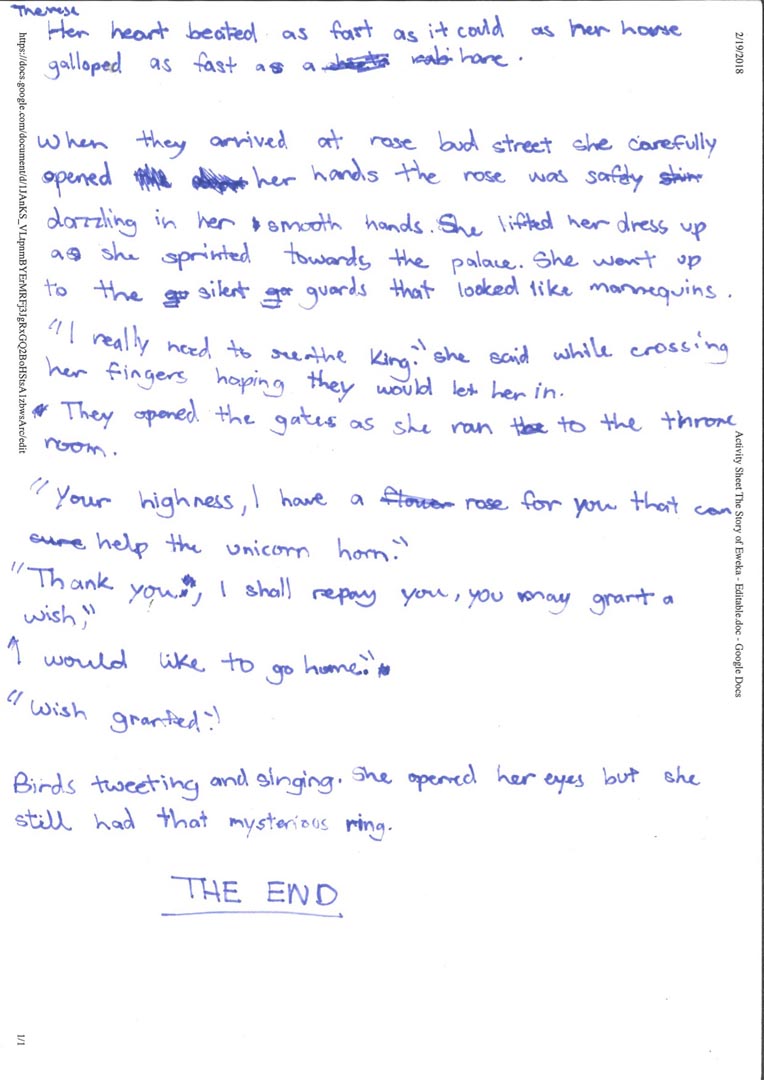 Therese
Her heart beated as fast as it could as her horse
galloped as fast as a rabi hare.
When they arrived at rose bud street she carefully
opened her hands the rose was safely
dazzling in her smooth hands. She lifted her dress up
as she sprinted towards the palace. She went up
to the go silent go guards that looked like mannequins.
"I really need to see the King." she said while crossing
her fingers hoping they would let her in.
They opened the gates as she ran to the throne
room.
"Your highness, I have a flower rose for you that can
cure help the unicorn horn."
"Thank you, I shall repay you, you may grant a
wish,"
I would like to go home."
"Wish granted."
Birds tweeting and singing. She opened her eyes but she
still had that mysterious ring.
THE END
2/19/2018
Activity Sheet The Story of Eweka - Editable.doc - Google Docs
1/1